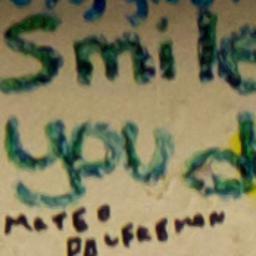 Smile
you d
MATEO
PALFREMAN